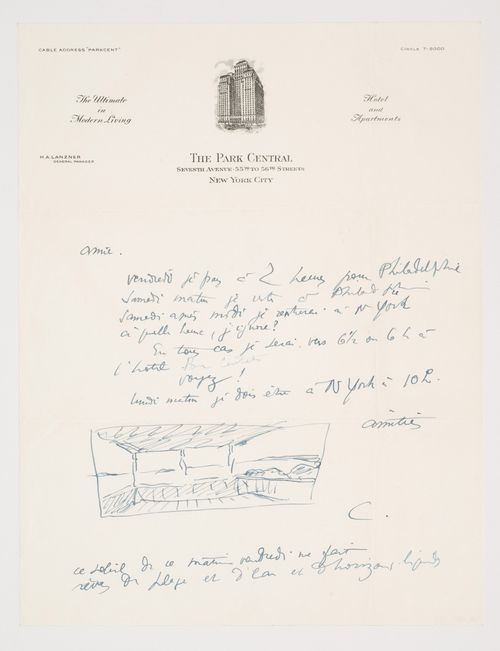 CABLE ADDRESS "PARKCENT"
CIRCLE 7-8000
The Ultimate
in
Modern Living
Hotel
and
Apartments
H. A. LANZNER
GENERAL MANAGER
THE PARK CENTRAL
SEVENTH AVENUE · 55TH TO 56TH STREETS
NEW YORK CITY
amie.
vendredi je pars à 2 heures pour Philadelphie
Samedi matin je à Philadelphie
Samedi après midi je rentrerai à N York
à quelle heure, j'ignore?
En tous cas je serai vers 6½ ou 6 h à
l'hôtel
voyez!
lundi matin je dois être à N York à 10 h.
amitiés
C.
ce soleil de ce matin vendredi me fait
rêver de plage et d'eau et d'horizons liquides